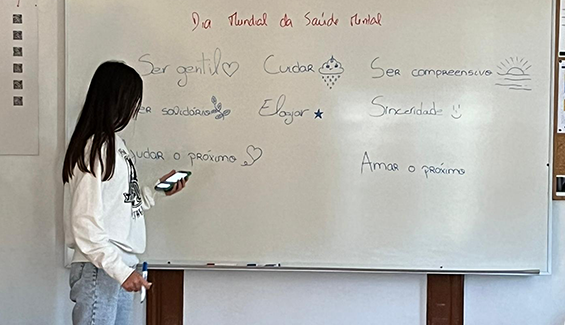 Dia Mundial da Saúde Mental
Ser gentil Cuidar Ser compreensivo
er solidário Elogiar Sinceridade
udar o próximo Amar o próximo